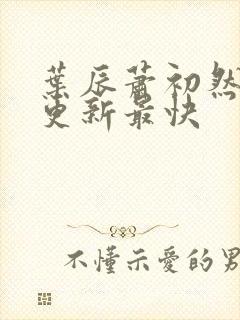 葉辰蕭初然
更新最快
不懂示愛的男